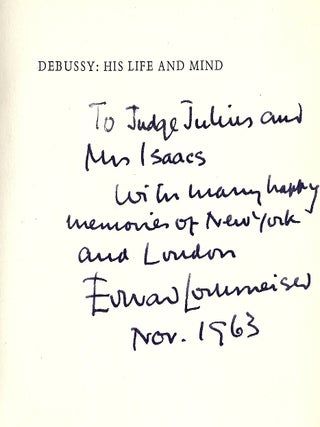 DEBUSSY: HIS LIFE AND MIND
To Judge Julius and
Mrs Isaacs
With many happy
memories of New York
and London
Edward Lockspeiser
Nov. 1963